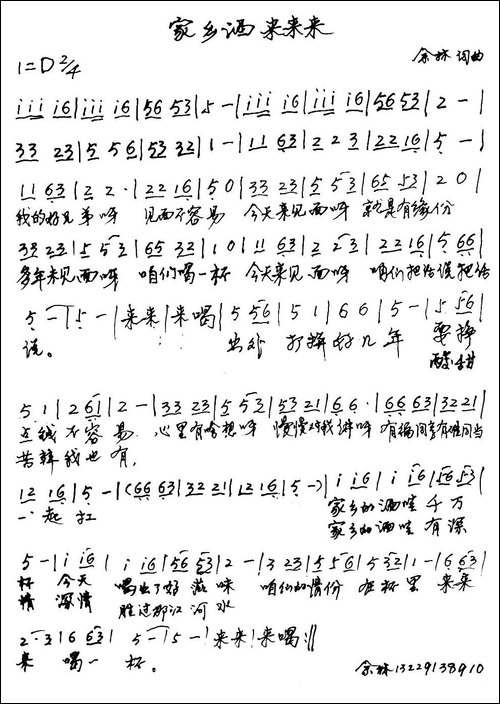 家乡酒来来来
1=D 2/4
余林 词曲
iii i6|iii i6|56 53|5 -|iii i6|iii i6|56 53|2 -|
33 23|5 5 6|53 32|1 -|11 63|2 2 3|22 16|5 -|
11 63|2 2·|22 16|5 0|33 23|5 5 3|65 53|2 0|
我的好兄弟呀 见面不容易 今天来见面呀 就是有缘份
33 23|5 5 3|65 32|1 0|11 63|2 2 3|22 16|5 66|
多年未见面呀 咱们喝一杯 今天来见面呀 咱们把话说把话
5 -|5 -|来来|来喝|5 56|5 1|6 6|5 -|5 56|
说。 出外 打拼好几年 要挣
酸甜
5 1|2 61|2 -|33 23|5 53|53 21|6 6·|66 63|32 21|
点钱不容易 心里有啥想呀 慢慢对我讲呀 有福同享有难同当
苦辣我也有,
12 16|5 -|(66 63|32 21|12 16|5 -)|i i6|i i6|56 53|
一起扛 家乡的酒哇千万
家乡的酒哇有深
5 -|i i6|i i6|56 53|2 -|3 23|5 56|5 32|1 -|6 63|
杯 今天 喝出了好滋味 咱们的情份在杯里 来来
情 深情 胜过那江河水
2· 3|6 63|5 -|5 -|来来|来喝:||
来 喝一杯。
余林13229138910